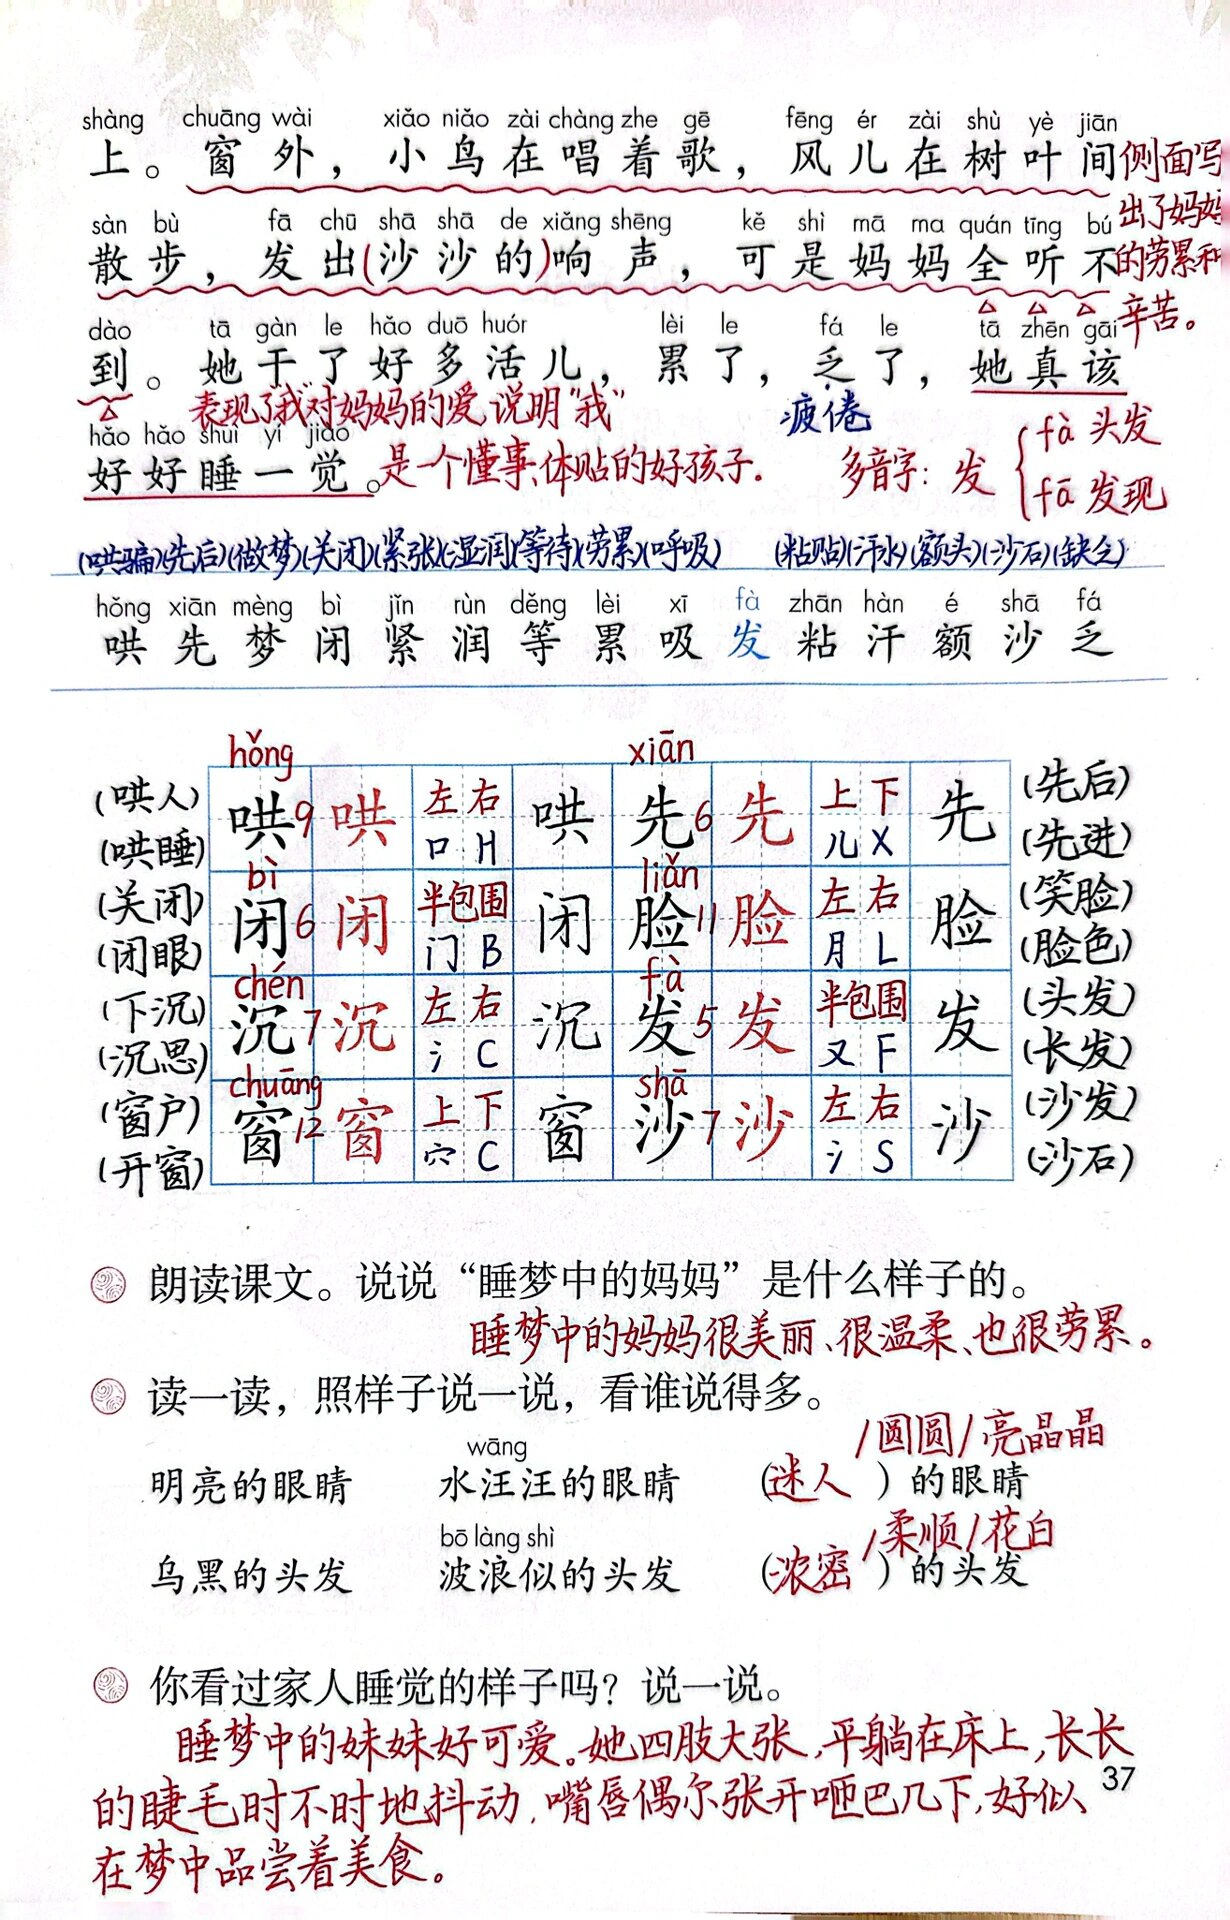 shàng chuāng wài xiǎo niǎo zài chàng zhe gē fēng ér zài shù yè jiān
上。窗外，小鸟在唱着歌，风儿在树叶间
侧面写
出了妈妈
的劳累和
辛苦。
sàn bù fā chū shā shā de xiǎng shēng kě shì mā ma quán tīng bú
散步，发出(沙沙的)响声，可是妈妈全听不
dào tā gàn le hǎo duō huór lèi le fá le tā zhēn gāi
到。她干了好多活儿，累了，乏了，她真该
表现了“我”对妈妈的爱，说明“我”
疲倦
hǎo hǎo shuì yí jiào
好好睡一觉。
是一个懂事、体贴的好孩子.
多音字：发 fà 头发
fā 发现
(哄骗)(先后)(做梦)(关闭)(紧张)(湿润)(等待)(劳累)(呼吸) (粘贴)(汗水)(额头)(沙石)(缺乏)
hǒng xiān mèng bì jǐn rùn děng lèi xī fà zhān hàn é shā fá
哄先梦闭紧润等累吸发粘汗额沙乏
hǒng xiān
(哄人) 哄9 哄 左右 哄 先6 先 上下 先 (先后)
(哄睡) 口 H 儿 X (先进)
bì liǎn
(关闭) 闭6 闭 半包围 闭 脸11 脸 左右 脸 (笑脸)
(闭眼) 门 B 月 L (脸色)
chén fà
(下沉) 沉7 沉 左右 沉 发5 发 半包围 发 (头发)
(沉思) 氵 C 又 F (长发)
chuāng shā
(窗户) 窗12 窗 上下 窗 沙7 沙 左右 沙 (沙发)
(开窗) 穴 C 氵 S (沙石)
朗读课文。说说“睡梦中的妈妈”是什么样子的。
睡梦中的妈妈很美丽、很温柔、也很劳累。
读一读，照样子说一说，看谁说得多。
wāng /圆圆/亮晶晶
明亮的眼睛 水汪汪的眼睛 (迷人)的眼睛
bō làng shì /柔顺/花白
乌黑的头发 波浪似的头发 (浓密)的头发
你看过家人睡觉的样子吗？说一说。
睡梦中的妹妹好可爱。她四肢大张，平躺在床上，长长
的睫毛时不时地抖动，嘴唇偶尔张开咂巴几下，好似
37
在梦中品尝着美食。